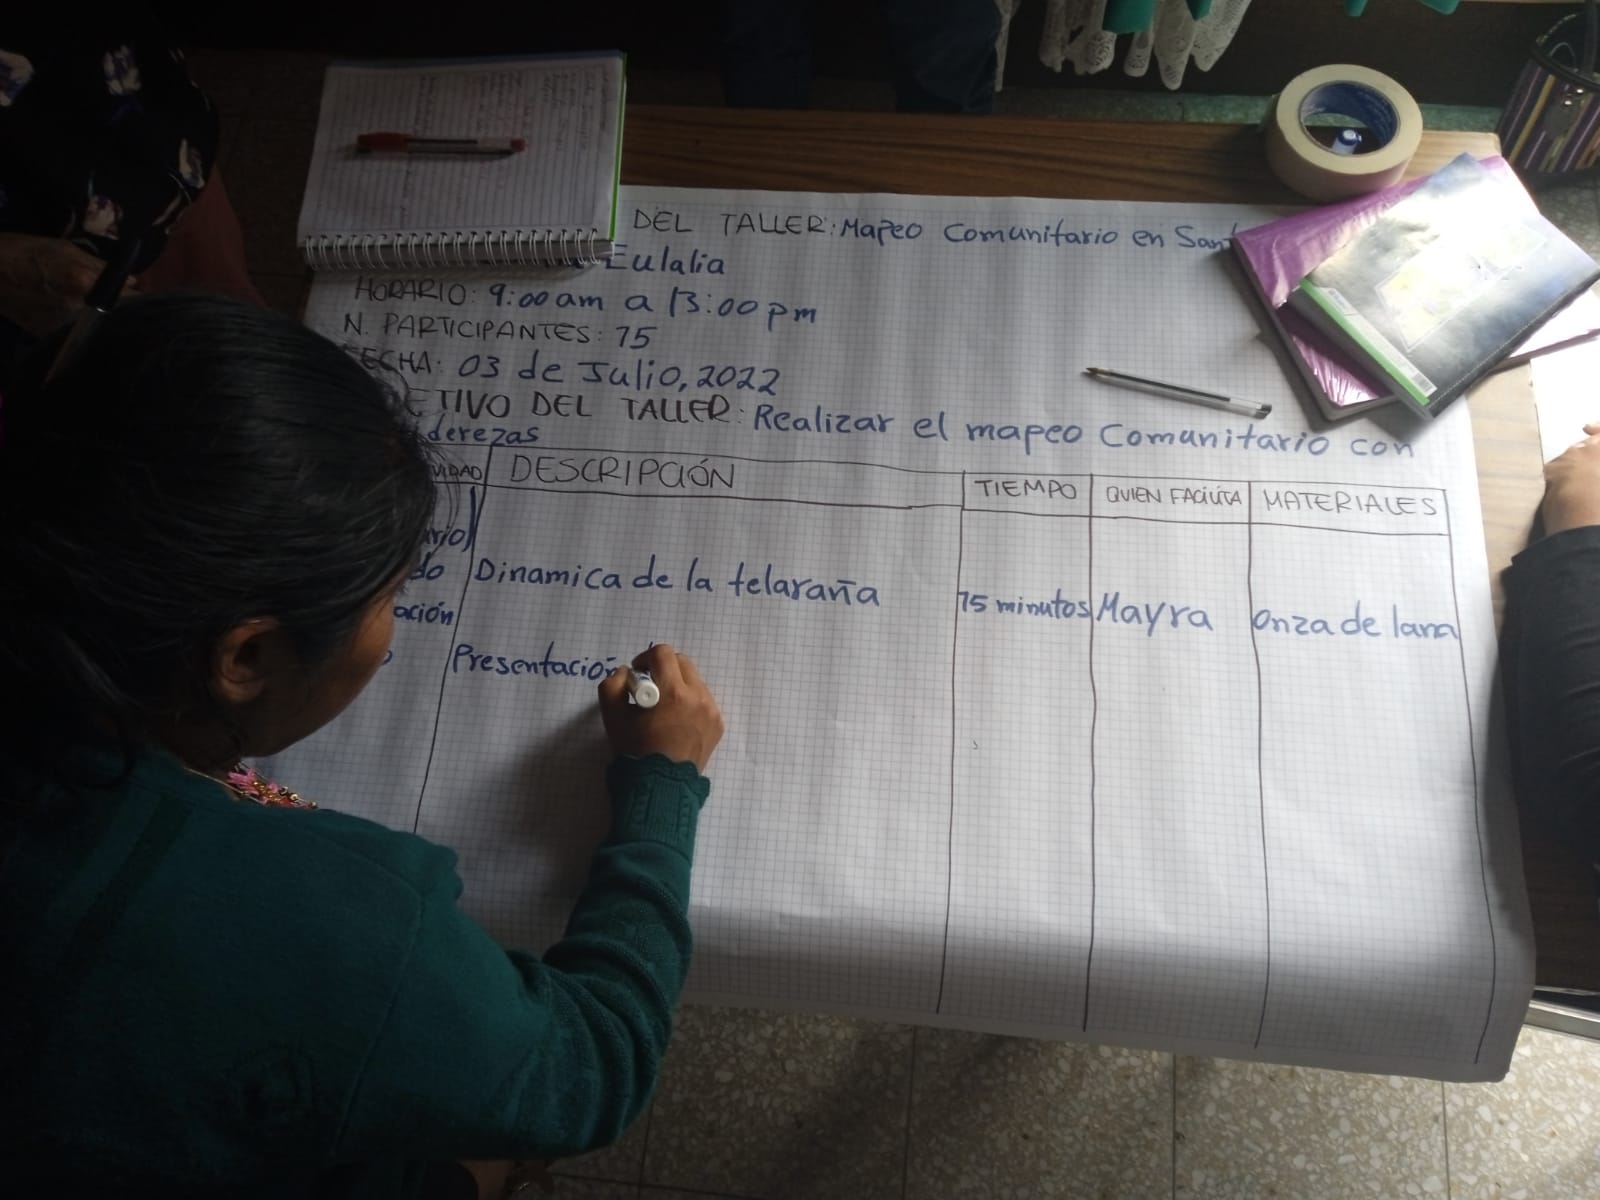 DEL TALLER: Mapeo Comunitario en San
Eulalia
HORARIO: 9:00 am a 13:00 pm
N. PARTICIPANTES: 15
FECHA: 03 de Julio, 2022
ETIVO DEL TALLER: Realizar el mapeo Comunitario con
derezas
VIDAD DESCRIPCIÓN TIEMPO QUIEN FACILITA MATERIALES
ario)
do Dinamica de la telaraña 15 minutos Mayra Onza de lana
ación
Presentación